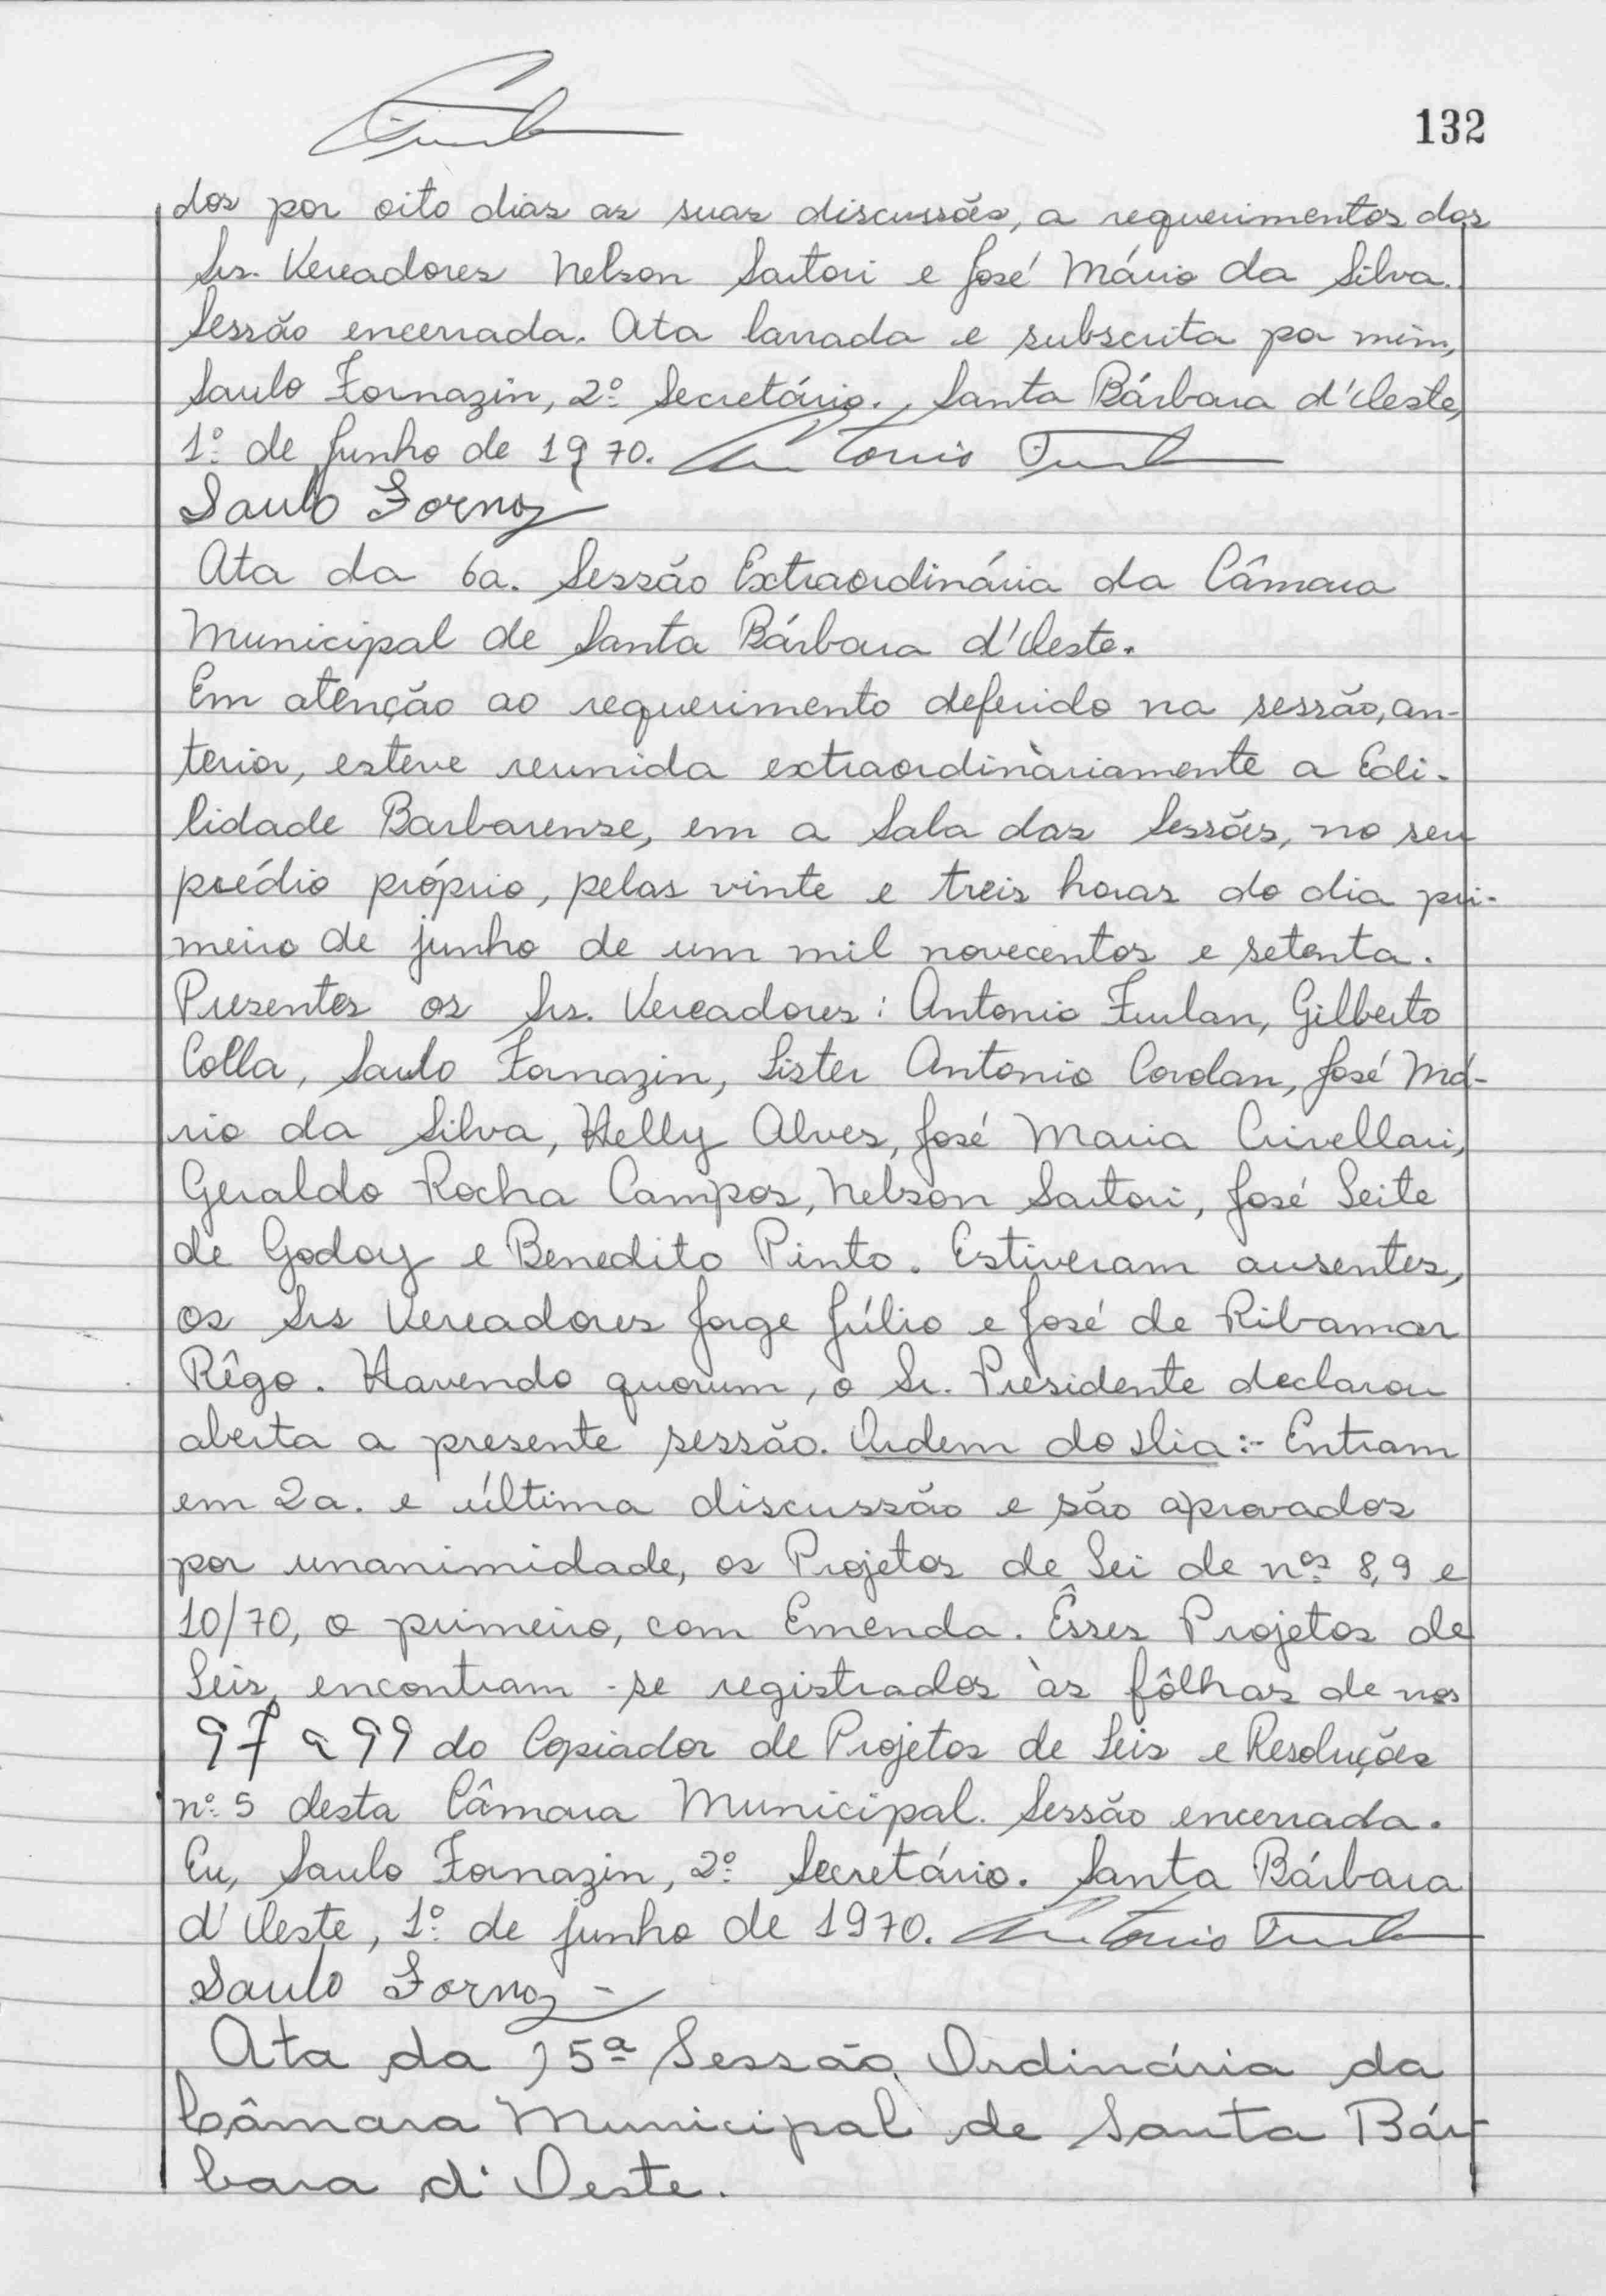 132
dos por oito dias as suas discussões, a requerimentos dos
Srs. Vereadores Nelson Sartori e José Mário da Silva.
Sessão encerrada. Ata lavrada e subscrita por mim,
Saulo Fornazin, 2º Secretário., Santa Bárbara d'Oeste,
1º de Junho de 1970. Antonio Furlan
Saulo Fornaz
Ata da 6a. Sessão Extraordinária da Câmara
Municipal de Santa Bárbara d'Oeste.
Em atenção ao requerimento deferido na sessão, an-
terior, esteve reunida extraordinàriamente a Edi-
lidade Barbarense, em a Sala das Sessões, no seu
prédio próprio, pelas vinte e treis horas do dia pri-
meiro de junho de um mil novecentos e setenta.
Presentes os Srs. Vereadores: Antonio Furlan, Gilberto
Colla, Saulo Fornazin, Lister Antonio Cordan, José Má-
rio da Silva, Helly Alves, José Maria Crivellari,
Geraldo Rocha Campos, Nelson Sartori, José Leite
de Godoy e Benedito Pinto. Estiveram ausentes,
os Srs Vereadores Jorge Júlio e José de Ribamar
Rêgo. Havendo quorum, o Sr. Presidente declarou
aberta a presente sessão. Ordem do Dia:- Entram
em 2a. e última discussão e são aprovados
por unanimidade, os Projetos de Lei de nºs 8, 9 e
10/70, o primeiro, com Emenda. Êsses Projetos de
Leis, encontram-se registrados às fôlhas de nos
97 a 99 do Copiador de Projetos de Leis e Resoluções
nº 5 desta Câmara Municipal. Sessão encerrada.
Eu, Saulo Fornazin, 2º Secretário. Santa Bárbara
d'Oeste, 1º de junho de 1970. Antonio Furlan
Saulo Fornaz
Ata da 15ª Sessão Ordinária da
Câmara Municipal de Santa Bár-
bara d'Oeste.